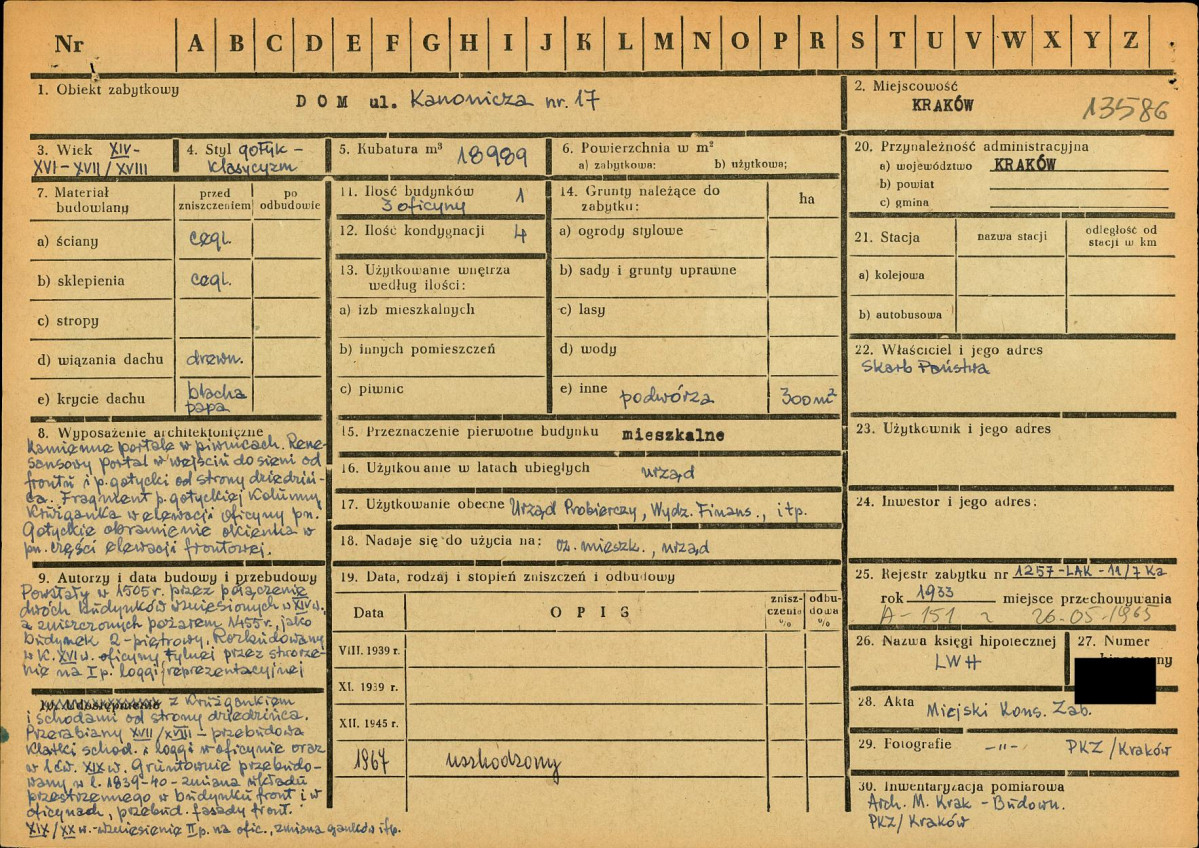 Nr A B C D E F G H I J K L M N O P R S T U V W X Y Z
1. Obiekt zabytkowy
DOM ul. Kanonicza nr. 17
2. Miejscowość
KRAKÓW
13586
3. Wiek XIV-
XVI-XVII/XVIII
4. Styl gotyk -
klasycyzm
5. Kubatura m³ 18989
6. Powierzchnia w m²
a) zabytkowa: b) użytkowa;
20. Przynależność administracyjna
a) województwo KRAKÓW
b) powiat
c) gmina
7. Materiał
budowlany
przed
zniszczeniem
po
odbudowie
a) ściany cegł.
b) sklepienia cegł.
c) stropy
d) wiązania dachu drewn.
e) krycie dachu blacha
papa
11. Ilość budynków 1
3 oficyny
12. Ilość kondygnacji 4
13. Użytkowanie wnętrza
według ilości:
a) izb mieszkalnych
b) innych pomieszczeń
c) piwnic
14. Grunty należące do
zabytku:
ha
a) ogrody stylowe
b) sady i grunty uprawne
c) lasy
d) wody
e) inne podwórza 300m²
21. Stacja
nazwa stacji
odległość od
stacji w km
a) kolejowa
b) autobusowa
22. Właściciel i jego adres
Skarb Państwa
8. Wyposażenie architektoniczne
Kamienne portale w piwnicach. Rene-
sansowy portal w wejściu do sieni od
frontu i p. gotycki od strony dziedziń-
ca. Fragment p. gotyckiej kolumny
krużganka w elewacji oficyny pn.
Gotyckie obramienie okienka w
pn. części elewacji frontowej.
15. Przeznaczenie pierwotne budynku mieszkalne
16. Użytkowanie w latach ubiegłych urząd
17. Użytkowanie obecne Urząd Probierczy, Wydz. Finans., itp.
18. Nadaje się do użycia na: oz. mieszk., urząd
23. Użytkownik i jego adres
24. Inwestor i jego adres:
9. Autorzy i data budowy i przebudowy
Powstały w 1505 r. przez połączenie
dwóch budynków wzniesionych w XIV w.
a zniszczonych pożarem 1455 r., jako
budynek 2-piętrowy. Rozbudowany
w k. XVI w. oficyny tylnej przez stworze-
nie na I p. loggi reprezentacyjnej
10. Udostępnienie
z krużgankiem
i schodami od strony dziedzińca.
Przerabiany XVII/XVIII - przebudowa
klatki schod. i loggi w oficynie oraz
w I ćw. XIX w. Gruntownie przebudo-
wany w l. 1839-40 - zmiana układu
przestrzennego w budynku front i w
oficynach, przebud. fasady front.
XIX/XX w. - wzniesienie II p. na ofic., zmiana ganków itp.
19. Data, rodzaj i stopień zniszczeń i odbudowy
Data
OPIS
znisz-
czenie
%
odbu-
dowa
%
VIII. 1939 r.
XI. 1939 r.
XII. 1945 r.
1967 uszkodzony
25. Rejestr zabytku nr 1257-LAK-11/7 Ka
rok 1933 miejsce przechowywania
A-151 26-05-1965
26. Nazwa księgi hipotecznej
LWH
27. Numer
28. Akta
Miejski Kons. Zab.
29. Fotografie -"- PKZ/Kraków
30. Inwentaryzacja pomiarowa
Arch. M. Krak - Budown.
PKZ/Kraków